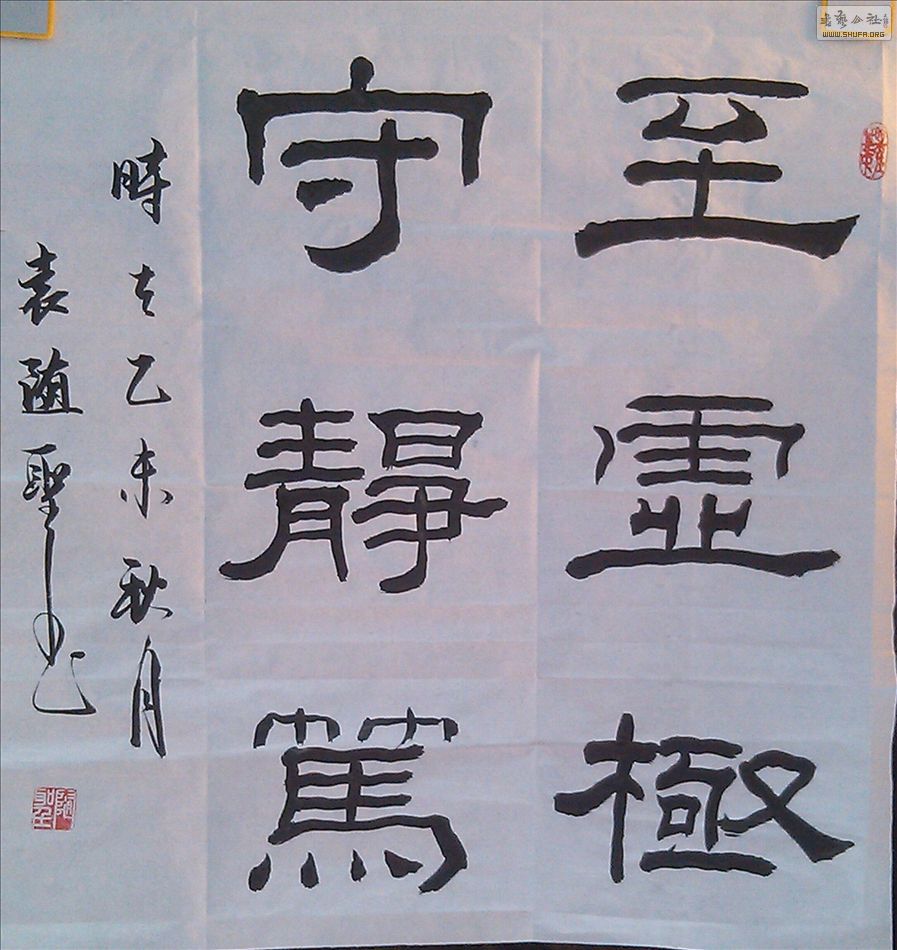 至虚極
守靜篤
時在乙未秋月
袁随聖书
書艺公社
WWW.SHUFA.ORG